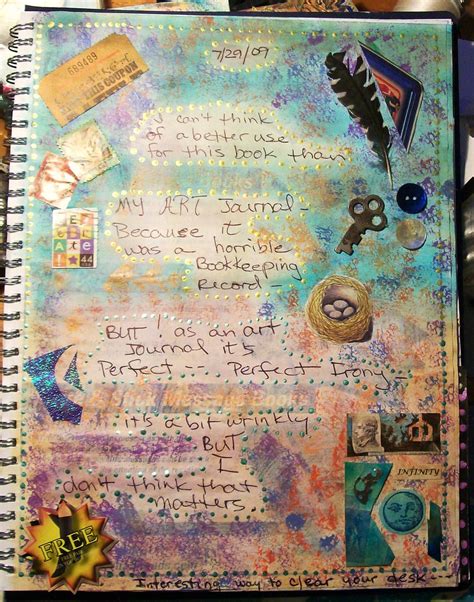 7/29/09
689489
THIS COUPON
I can't think
of a better use
for this book than
MY ART Journal -
Because it
was a horrible
Bookkeeping
Record -
CELEBRATE!
44
BUT! as an art
Journal it's
Perfect -- Perfect Irony -
Message Books
it's a bit wrinkly
BUT
I
don't think that
matters.
INFINITY
FREE
Interesting way to clear your desk ---